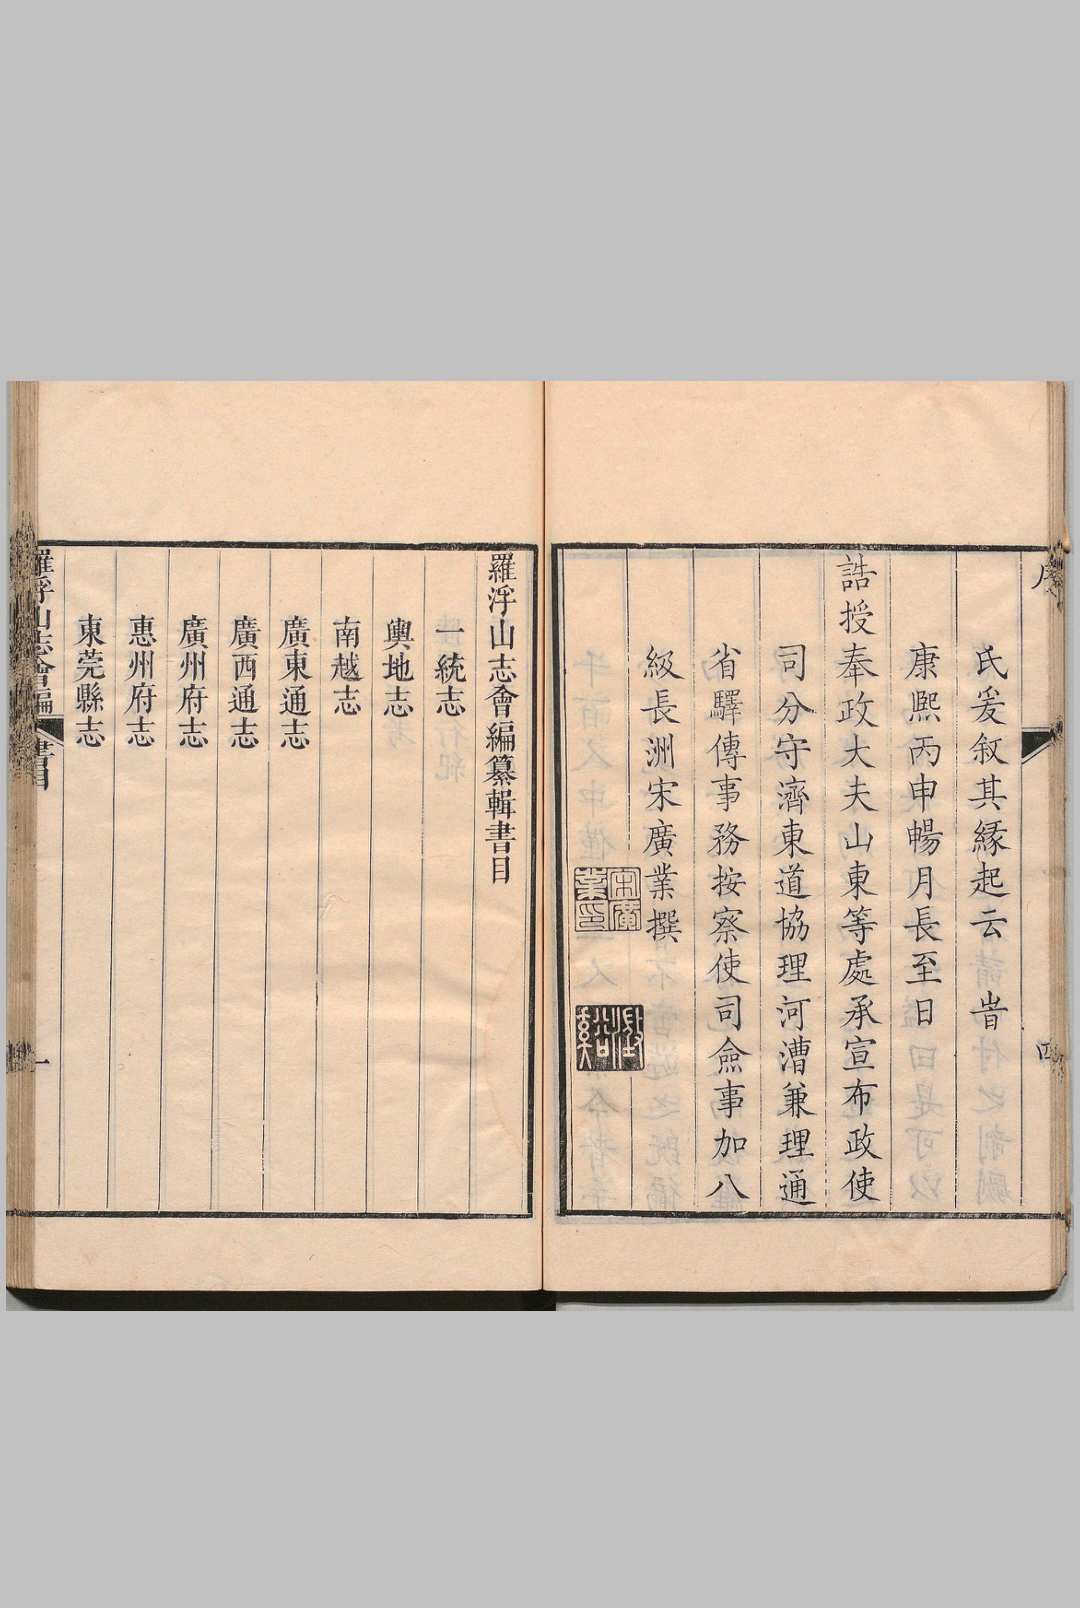 序
四
氏爰叙其縁起云 旹
康熙丙申暢月長至日
誥授奉政大夫山東等處承宣布政使
司分守濟東道協理河漕兼理通
省驛傳事務按察使司僉事加八
級長洲宋廣業撰
宋廣業印
羅浮山志會編纂輯書目
一統志
輿地志
南越志
廣東通志
廣西通志
廣州府志
惠州府志
東莞縣志
羅浮山志會編
書目
一